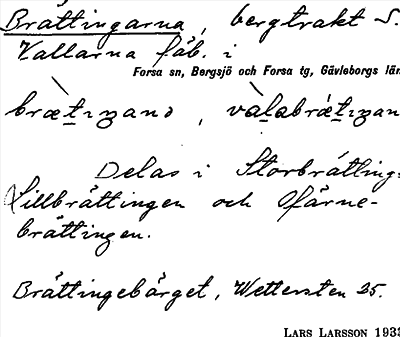 Brättingarna, bergtrakt S.
Vallarna fäb. i
Forsa sn, Bergsjö och Forsa tg, Gävleborgs län
Delas i Storbrätting-
Lillbrättingen och Färne-
brättingen.
Brättingebärget, Wettersten 25.
LARS LARSSON 1933